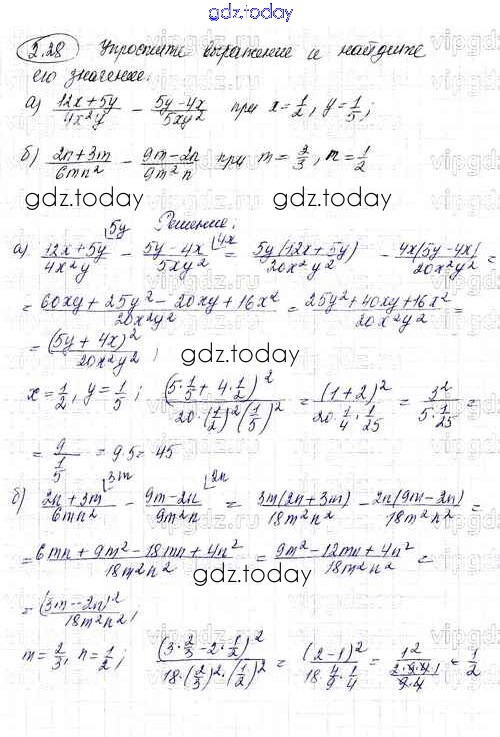 gdz.today
2.28 Упростите выражение и найдите
его значение:
а) (12x+5y)/(4x²y) − (5y−4x)/(5xy²) при x=1/2, y=1/5;
б) (2n+3m)/(6mn²) − (9m−2n)/(9m²n) при m=2/3, n=1/2
gdz.today gdz.today
Решение:
а) (12x+5y)/(4x²y) ⌊5y − (5y−4x)/(5xy²) ⌊4x = 5y(12x+5y)/(20x²y²) − 4x(5y−4x)/(20x²y²) =
= (60xy+25y²−20xy+16x²)/(20x²y²) = (25y²+40xy+16x²)/(20x²y²) =
= (5y+4x)²/(20x²y²);
gdz.today
x=1/2, y=1/5; (5·1/5+4·1/2)²/(20·(1/2)²(1/5)²) = (1+2)²/(20·1/4·1/25) = 3²/(5·1/25) =
= 9/(1/5) = 9·5=45
б) (2n+3m)/(6mn²) ⌊3m − (9m−2n)/(9m²n) ⌊2n = 3m(2n+3m)/(18m²n²) − 2n(9m−2n)/(18m²n²) =
= (6mn+9m²−18mn+4n²)/(18m²n²) = (9m²−12mn+4n²)/(18m²n²) =
gdz.today
= (3m−2n)²/(18m²n²);
m=2/3, n=1/2; (3·2/3−2·1/2)²/(18·(2/3)²·(1/2)²) = (2−1)²/(18·4/9·1/4) = 1²/((2·9·4)/(9·4)) = 1/2
gdz.today